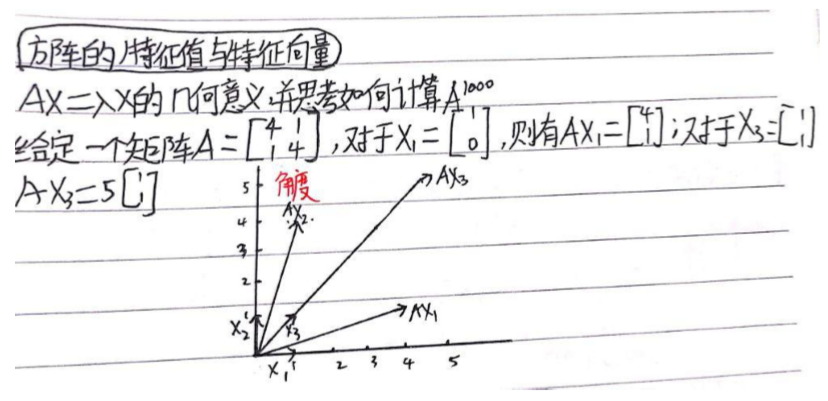 方阵的特征值与特征向量
AX=λX的几何意义.并思考如何计算A¹⁰⁰⁰
给定一个矩阵A=[4 1; 1 4],对于X₁=[1; 0],则有AX₁=[4; 1];对于X₃=[1; 1]
AX₃=5[1; 1]
角度
AX₂
AX₃
AX₁
X₂
X₃
X₁
5
4
3
2
1
1 2 3 4 5